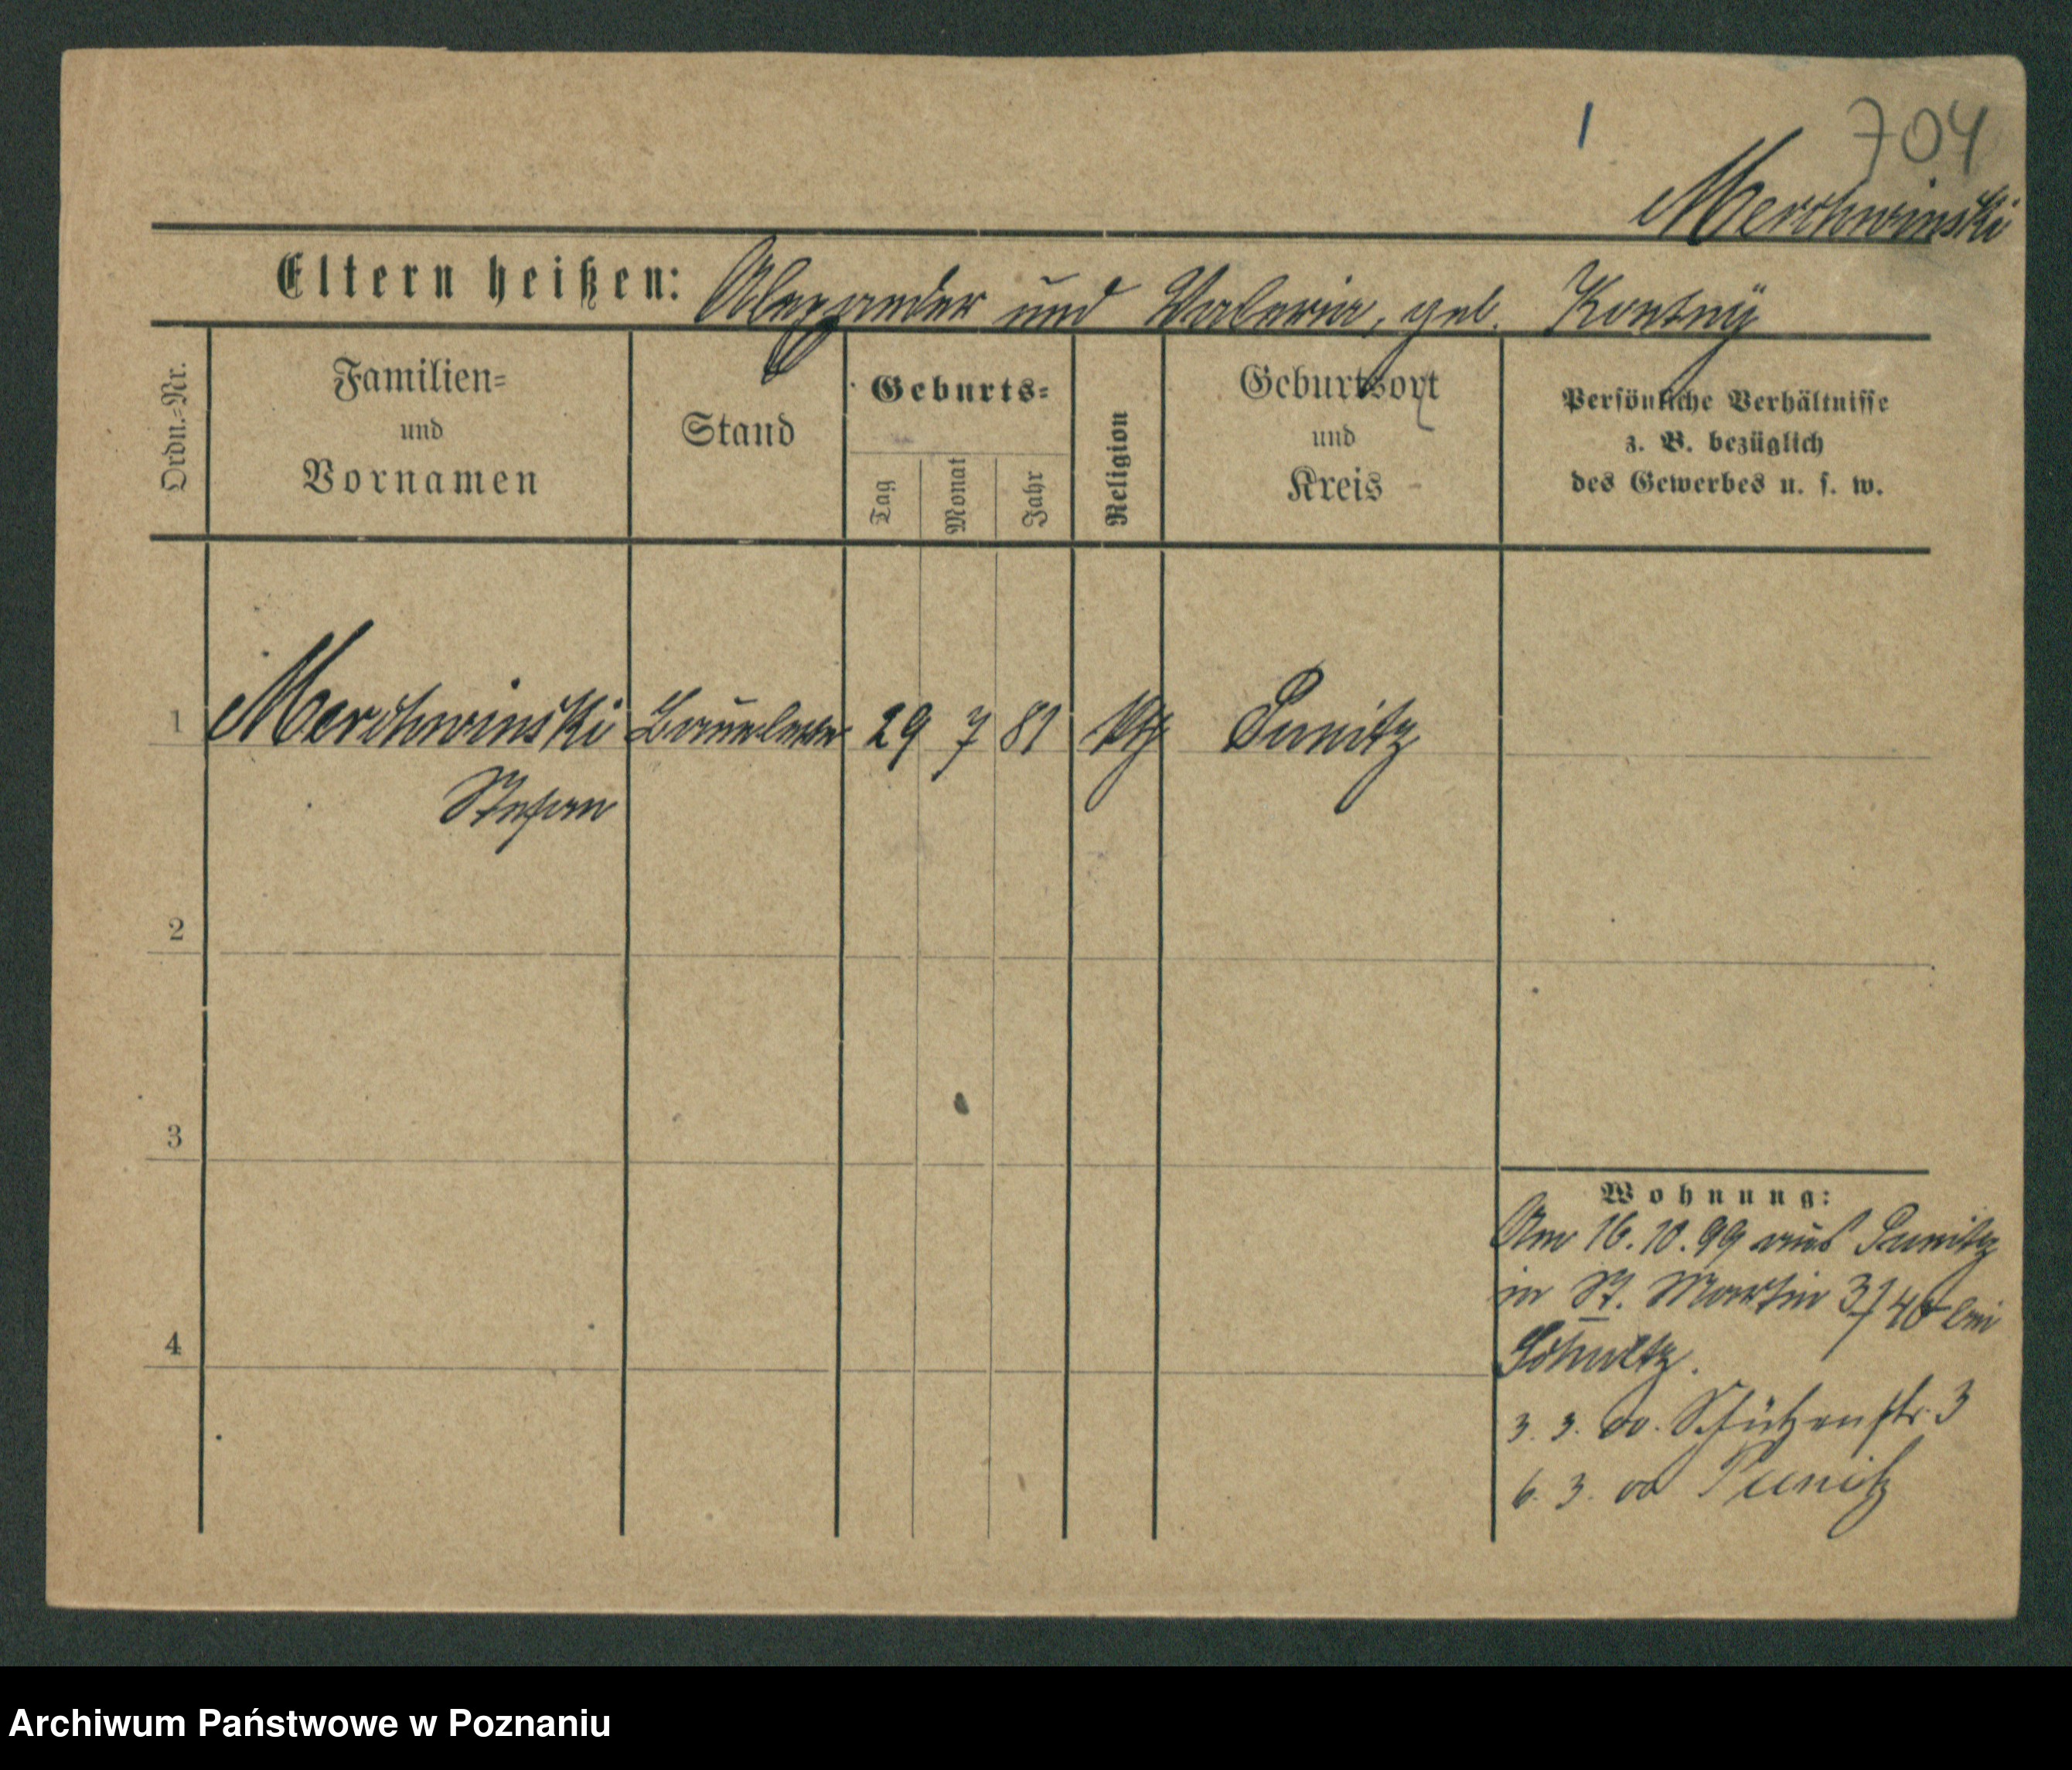 1
704
Merchwinski
Eltern heißen: Alexander und Valeria, geb. Kontny
Ordn.-Nr.
Familien-
und
Vornamen
Stand
Geburts-
Tag
Monat
Jahr
Religion
Geburtsort
und
Kreis
Persönliche Verhältnisse
z. B. bezüglich
des Gewerbes u. s. w.
1 Merchwinski 29 7 81 kth Punitz
Stefan
2
3
4
Wohnung:
Am 16.10.99 aus Punitz
in St. Martin bei
Schultz.
3. 3. 00. Schützenstr. 3
6. 3. 00 Punitz
Archiwum Państwowe w Poznaniu